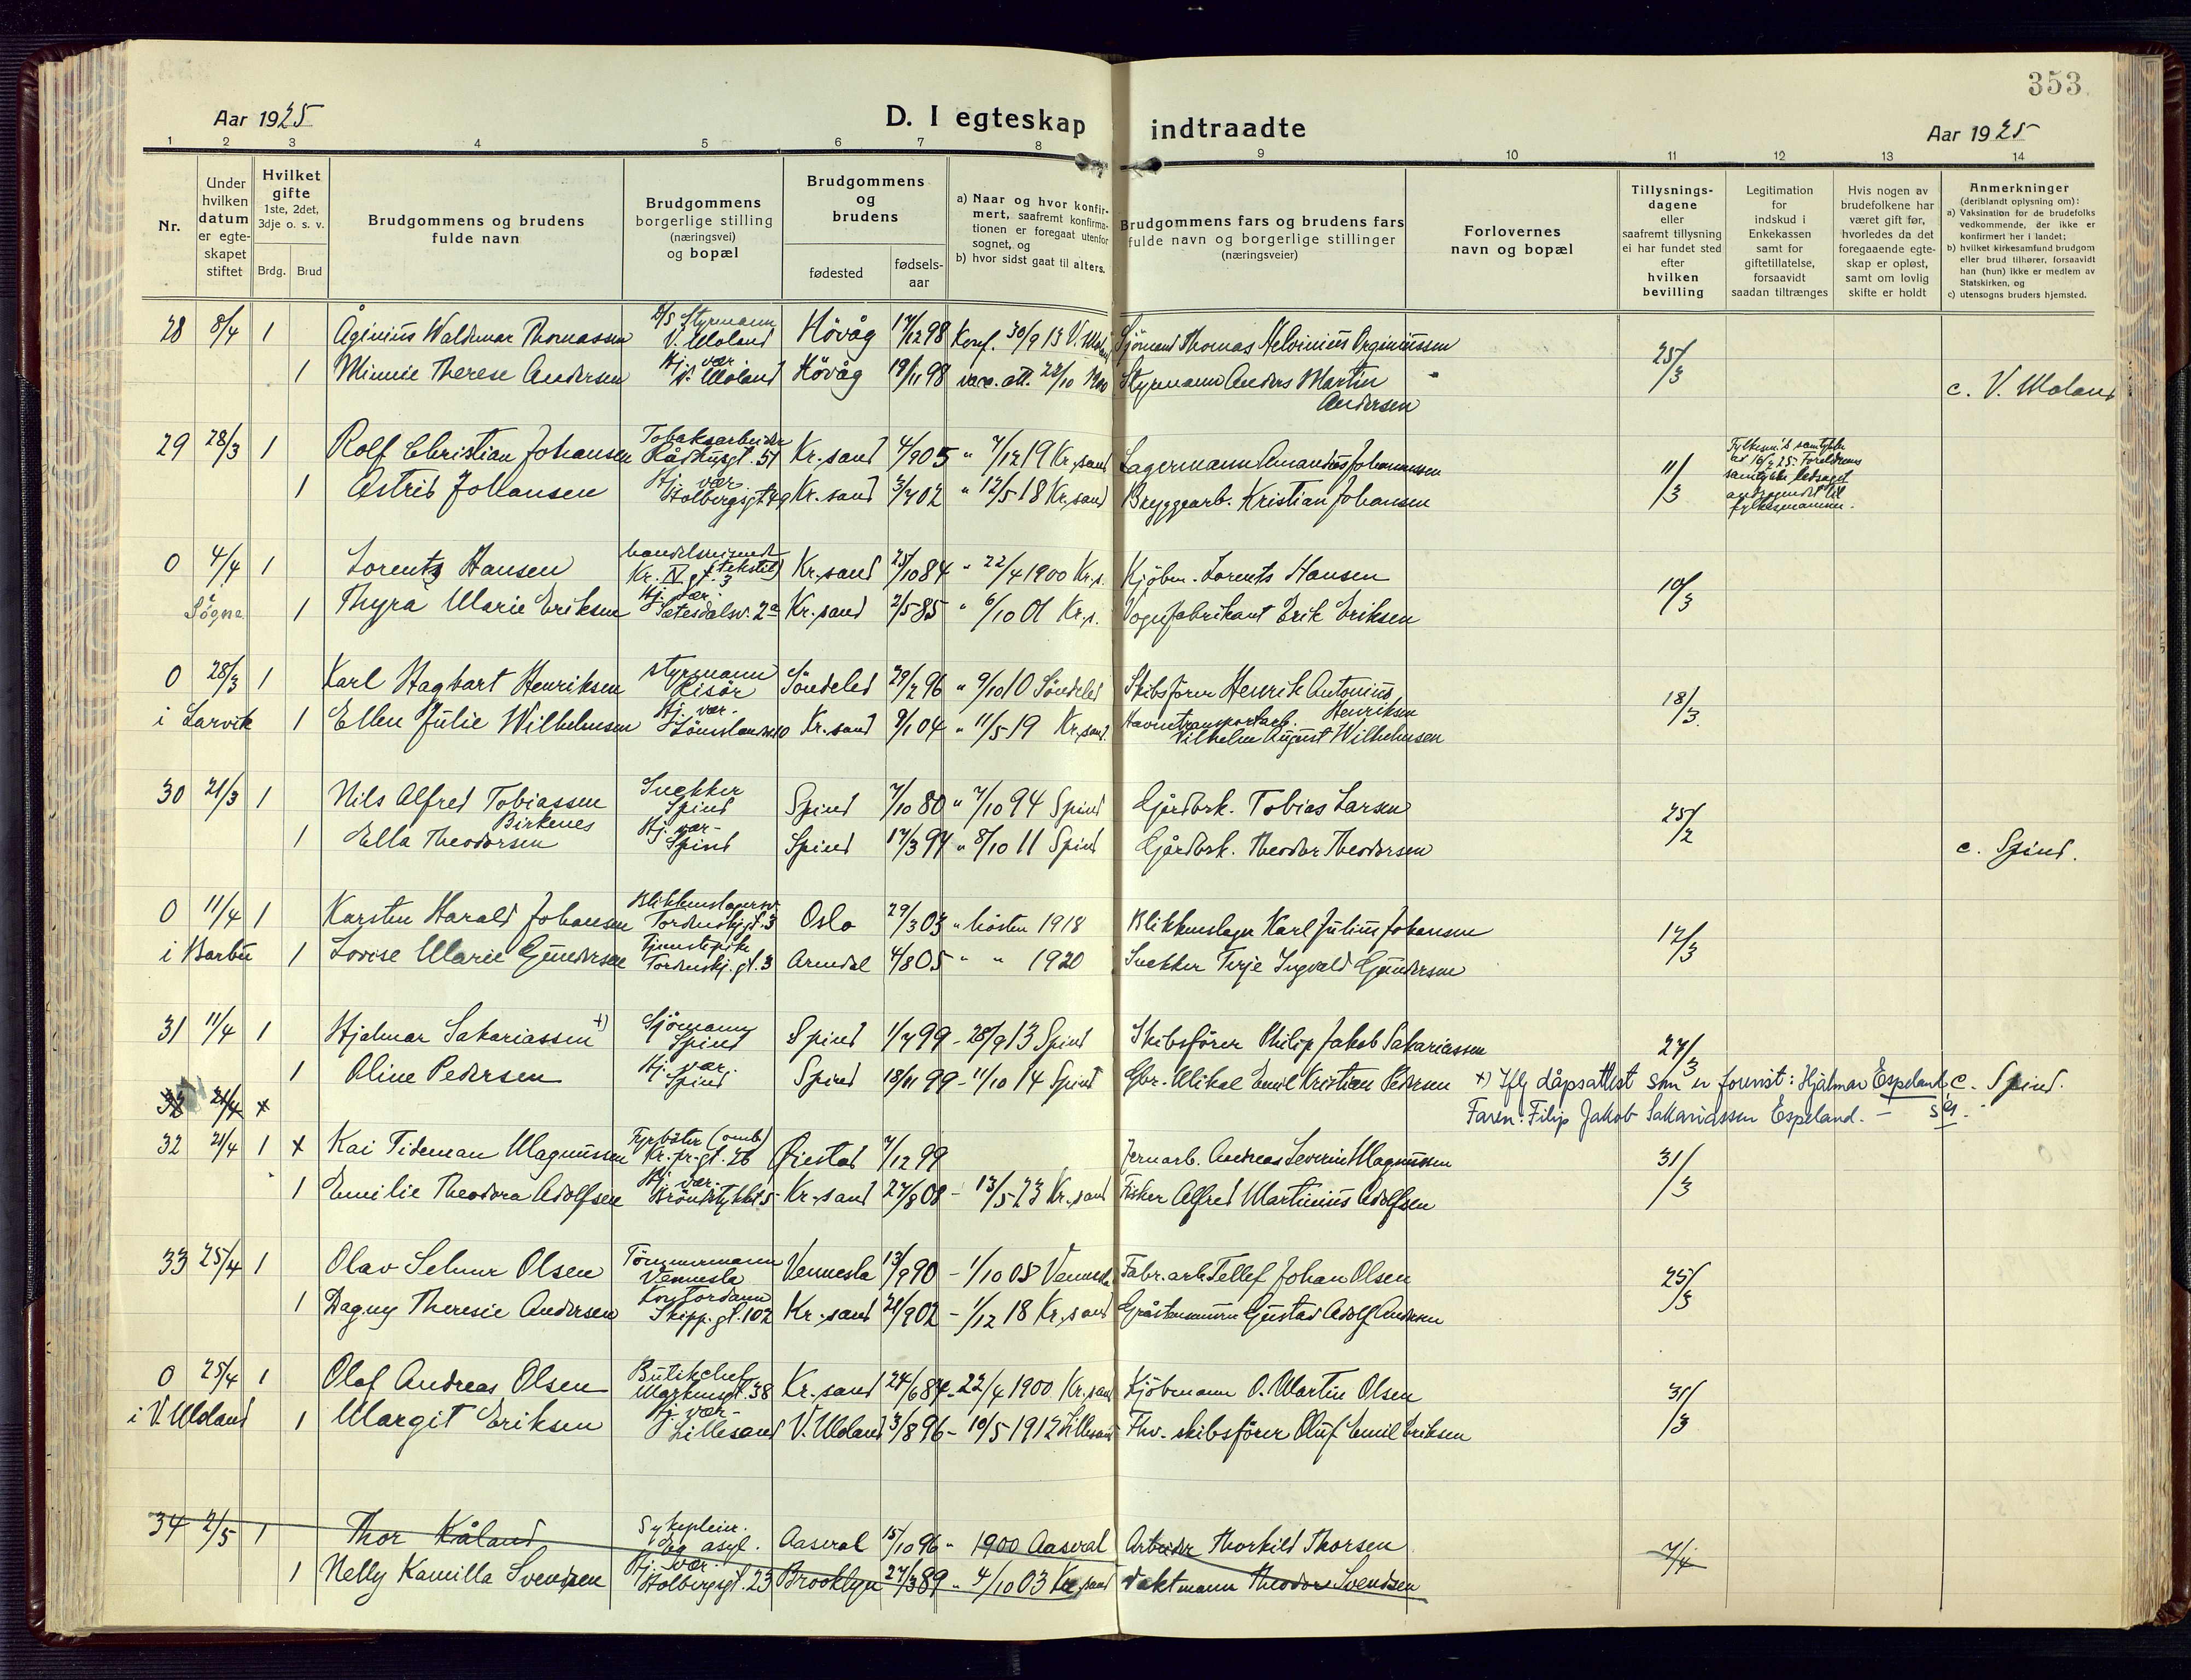 353
Aar 1925
D. I egteskap indtraadte
Aar 1925
1 2 3 4 5 6 7 8 9 10 11 12 13 14
Nr.
Under hvilken datum er egteskapet stiftet
Hvilket gifte 1ste, 2det, 3dje o. s. v.
Brdg. Brud
Brudgommens og brudens fulde navn
Brudgommens borgerlige stilling (næringsvei) og bopæl
Brudgommens og brudens
fødested
fødselsaar
a) Naar og hvor konfirmert, saafremt konfirmationen er foregaat utenfor sognet, og
b) hvor sidst gaat til alters.
Brudgommens fars og brudens fars fulde navn og borgerlige stillinger (næringsveier)
Forlovernes navn og bopæl
Tillysningsdagene eller saafremt tillysning ei har fundet sted efter hvilken bevilling
Legitimation for indskud i Enkekassen samt for giftetillatelse, forsaavidt saadan tiltrænges
Hvis nogen av brudefolkene har været gift før, hvorledes da det foregaaende egteskap er opløst, samt om lovlig skifte er holdt
Anmerkninger (deriblandt oplysning om):
a) Vaksination for de brudefolks vedkommende, der ikke er konfirmert her i landet;
b) hvilket kirkesamfund brudgom eller brud tilhører, forsaavidt han (hun) ikke er medlem av Statskirken, og
c) utensogns bruders hjemsted.
28 8/4 1 Åginius Waldemar Thomassen Styrmann V. Moland Høvåg 17/12 98 Konf. 30/9 13 V. Moland Sjömand Thomas Helvinius Orginiussen 25/3
1 Minnie Therese Andersen Hj. vær. V. Moland Høvåg 19/11 98 Styrmann Anders Martin Andersen c. V. Moland
29 28/3 1 Rolf Christian Johansen Tobaksarbeider Rådhusgt. 51 Kr.sand 4/9 05 " 7/12 19 Kr.sand Lagermann Amandus Johannessen 11/3
1 Astrid Johansen Hj. vær. Holbergsgt. 49 Kr.sand 3/7 02 " 12/5 18 Kr.sand Bryggearb. Kristian Johansen
0 4/4 1 Lorentz Hansen handelsreisende (tekstil) Kr. IV gt. 3 Kr.sand 25/10 84 " 22/4 1900 Kr.s. Kjöbm. Lorents Hansen 10/3
i Søgne 1 Thyra Marie Eriksen Hj. vær. Setesdalsv. 2a Kr.sand 2/5 85 " 6/10 01 Kr.s. Vognfabrikant Erik Eriksen
0 28/3 1 Karl Hagbart Henriksen styrmann Risör Söndeled 29/2 96 " 9/10 10 Söndeled Skibsförer Henrik Antonius Henriksen 18/3
i Larvik 1 Ellen Julie Wilhelmsen Hj. vær. Kr.sand 9/1 04 " 11/5 19 Kr.sand Havnetransportarb. Vilhelm August Wilhelmsen
30 21/3 1 Nils Alfred Tobiassen Birkenes Snekker Spind Spind 7/10 80 " 7/10 94 Spind Gårdbrk. Tobias Larsen 25/2
1 Ella Theodorsen Hj. vær. Spind Spind 17/3 94 " 8/10 11 Spind Gårdbrk. Theodor Theodorsen c. Spind.
0 11/4 1 Karsten Harald Johansen Blikkenslagersv. Tordenskj.gt. 3 Oslo 29/3 03 " hösten 1918 Blikkenslager Karl Julius Johansen 17/3
i Barbu 1 Lovise Marie Gundersen Tjenestepike Tordenskj.gt. 3 Arendal 4/8 05 " " 1920 Snekker Terje Ingvald Gundersen
31 11/4 1 Hjalmar Sakariassen +) Sjömann Spind Spind 1/7 99 - 28/9 13 Spind Skibsförer Philip Jakob Sakariassen 27/3
1 Oline Pedersen Hj. vær. Spind Spind 18/11 99 - 11/10 14 Spind Gbr. Mikal Emil Kristian Pedersen +) Iflg dåpsattest skm er forenist: Hjalmar Espeland c. Spind.
32 21/4 + Faren: Filip Jakob Sakariassen Espeland. -
32 21/4 1 + Kai Tideman Magnussen Fyrböter (omb) Kr. pr. gt. 26 Øiestad 7/12 99 Jernarb. Andreas Severin Magnussen 31/3
1 Emilie Theodora Adolfsen Hj. vær. Bröndstykket 5 Kr.sand 27/8 08 - 13/5 23 Kr.sand Fisker Alfred Martinius Adolfsen
33 25/4 1 Olav Selmer Olsen Tömmermann Vennesla Vennesla 13/9 90 - 1/10 05 Vennesla Fabr.arb. Tellef Johan Olsen 25/3
1 Dagny Theresie Andersen Kontordame Skipp.gt. 102 Kr.sand 21/9 02 - 1/12 18 Kr.sand Gråstensmurer Gustav Adolf Andersen
0 25/4 1 Olaf Andreas Olsen Butikchef Markensgt. 38 Kr.sand 24/6 84 - 22/4 1900 Kr.sand Kjöbmann O. Martin Olsen 31/3
i V. Moland 1 Margit Eriksen Hj. vær. Lillesand V. Moland 3/8 96 - 10/5 1912 Lillesand Fhv. skibsförer Oluf Emil Eriksen
34 2/5 1 Thor Kåland Sykepleier. Eg asyl. Aaseral 15/10 96 " 1900 Aaseral Arbeider Thorkild Thorsen 7/4
1 Nelly Kamilla Svendsen Hj. vær. Holbergsgt. 23 Brooklyn 27/3 89 " 4/10 03 Kr.sand Vaktmann Theodor Svendsen